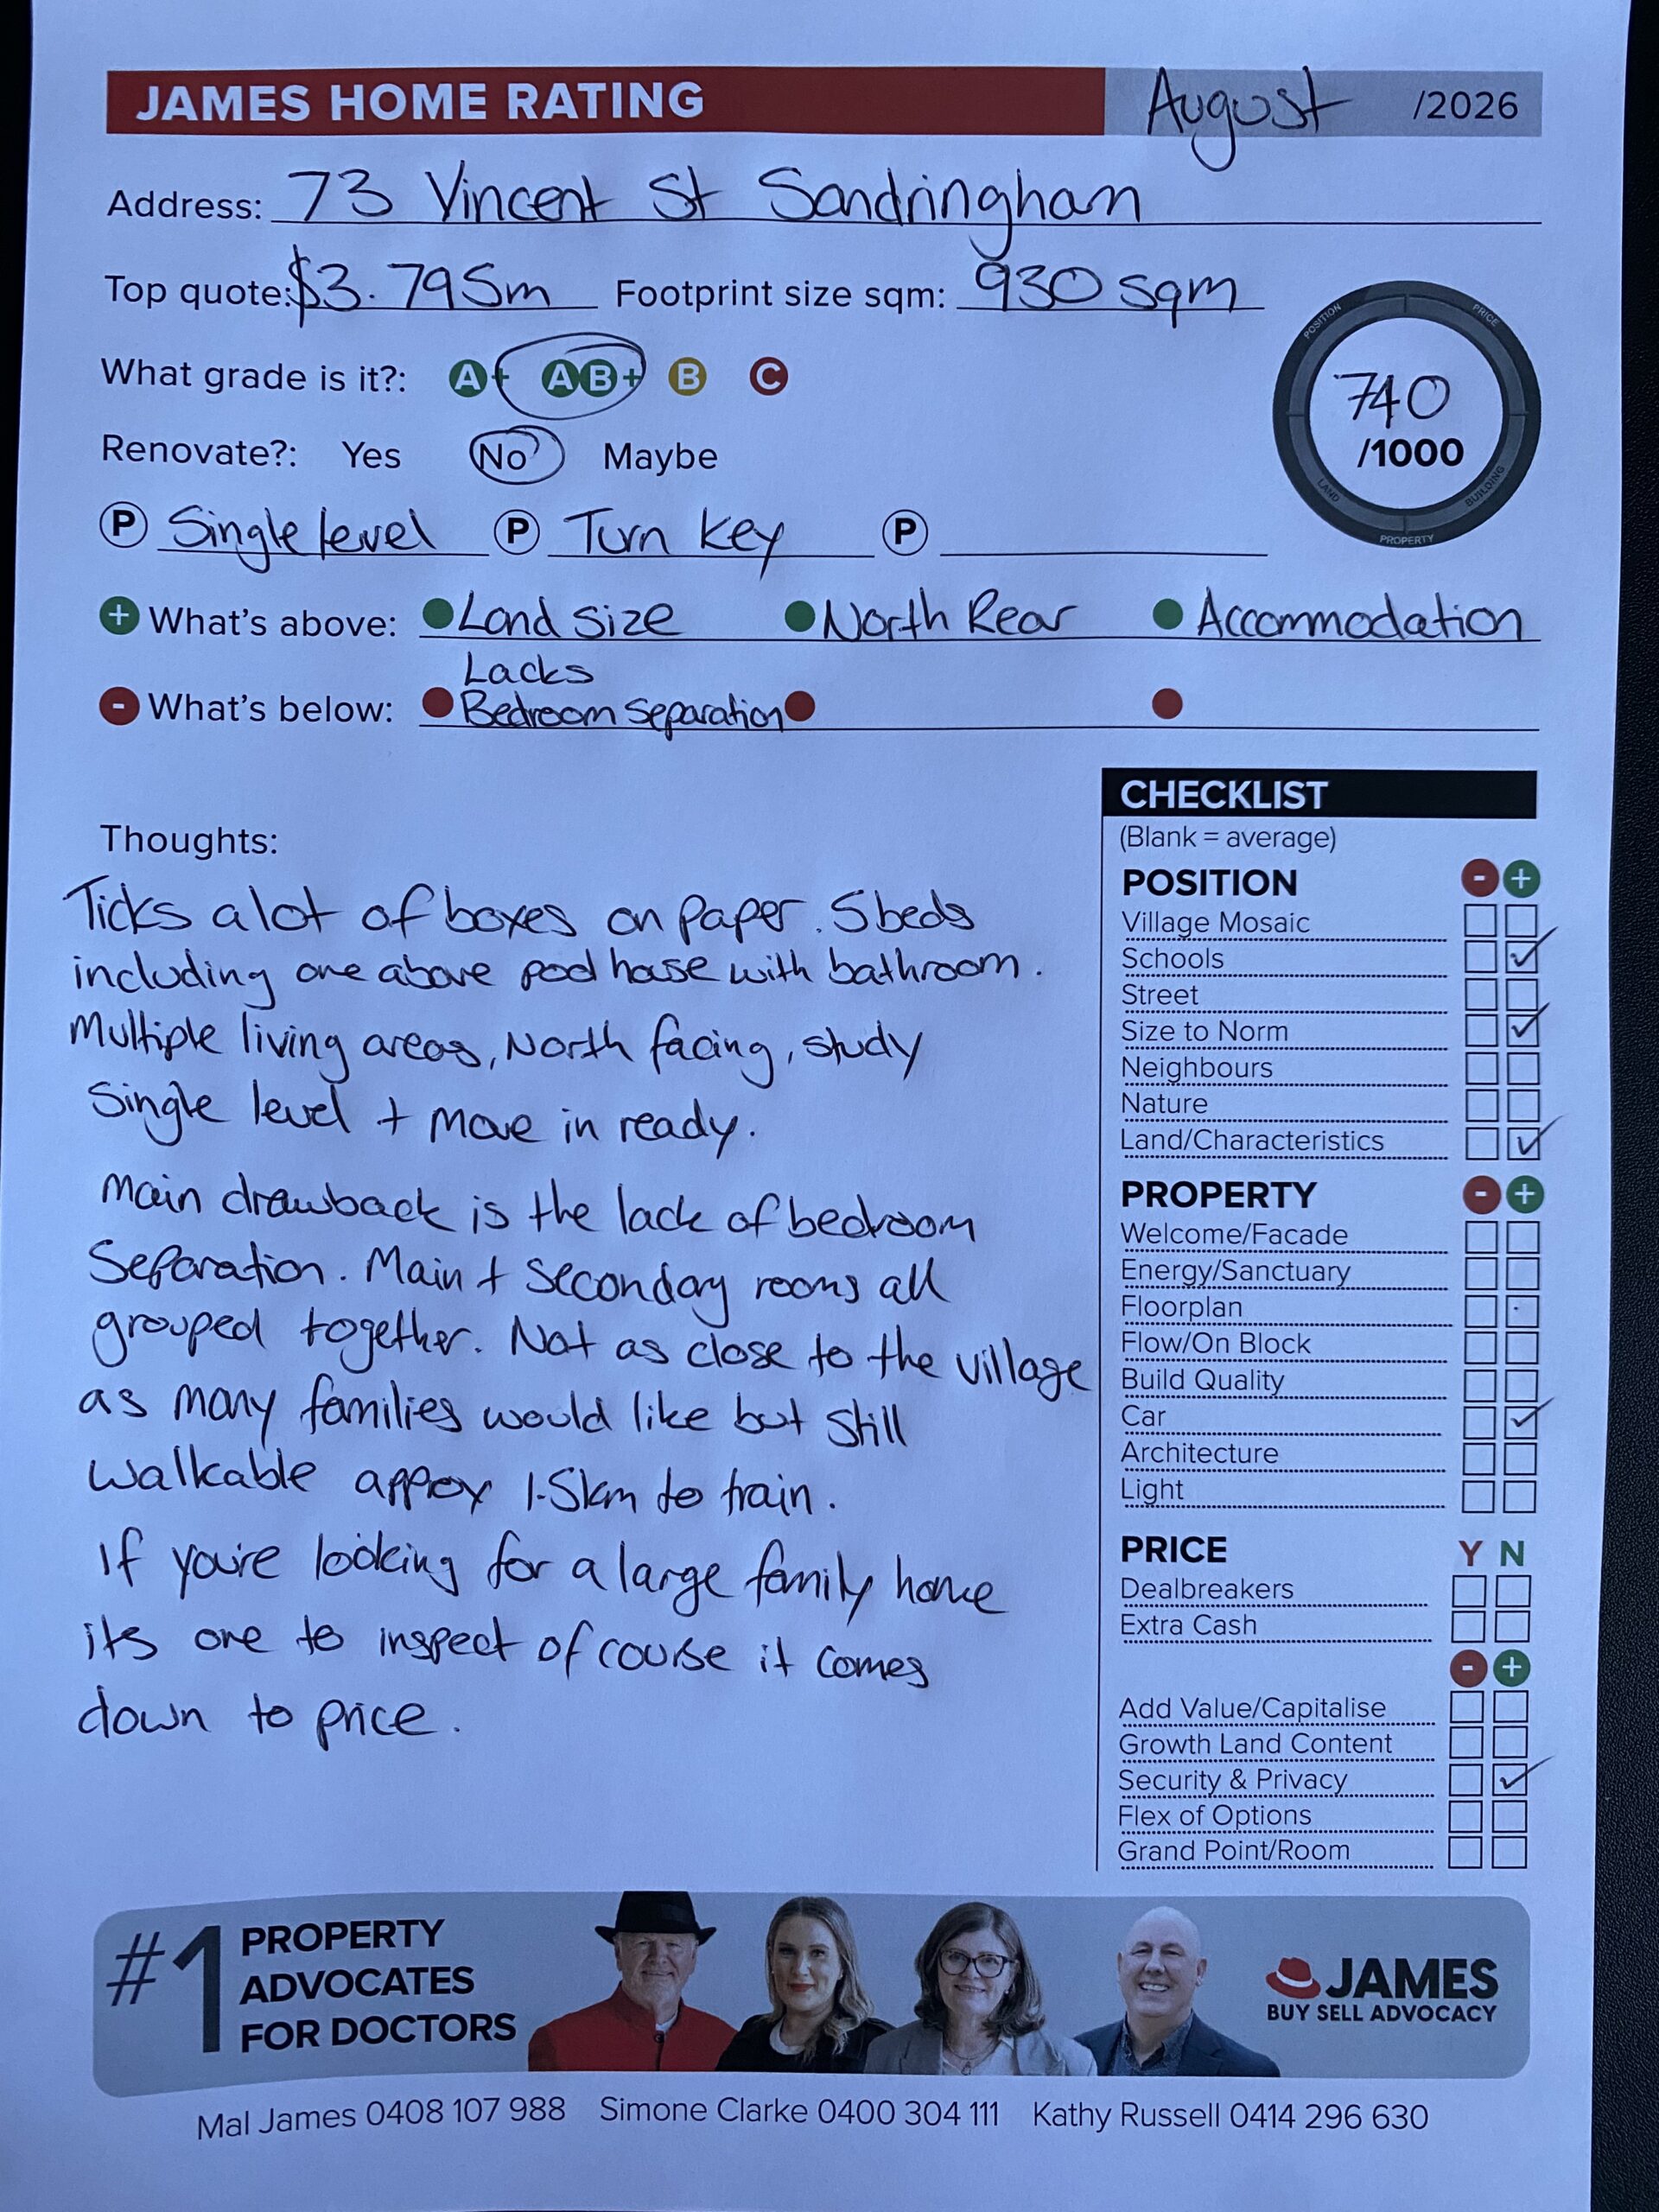 JAMES HOME RATING August /2026
Address: 73 Vincent St Sandringham
Top quote: $3.795m Footprint size sqm: 930 sqm
POSITION PRICE
What grade is it?: A+ AB+ B C
740
/1000
Renovate?: Yes No Maybe
LAND BUILDING
PROPERTY
P Single level P Turn key P
+ What's above: Land size North Rear Accommodation
Lacks
- What's below: Bedroom separation
CHECKLIST
(Blank = average)
POSITION - +
Village Mosaic
Schools ✓
Street
Size to Norm ✓
Neighbours
Nature
Land/Characteristics ✓
PROPERTY - +
Welcome/Facade
Energy/Sanctuary
Floorplan
Flow/On Block
Build Quality
Car ✓
Architecture
Light
PRICE Y N
Dealbreakers
Extra Cash
- +
Add Value/Capitalise
Growth Land Content
Security & Privacy ✓
Flex of Options
Grand Point/Room
Thoughts:
Ticks a lot of boxes on paper. 5 beds
including one above pool house with bathroom.
Multiple living areas, North facing, study
Single level + move in ready.
Main drawback is the lack of bedroom
Separation. Main + secondary rooms all
grouped together. Not as close to the village
as many families would like but still
walkable appox 1.5km to train.
If you're looking for a large family home
its one to inspect of course it comes
down to price.
#1 PROPERTY
ADVOCATES
FOR DOCTORS
JAMES
BUY SELL ADVOCACY
Mal James 0408 107 988 Simone Clarke 0400 304 111 Kathy Russell 0414 296 630